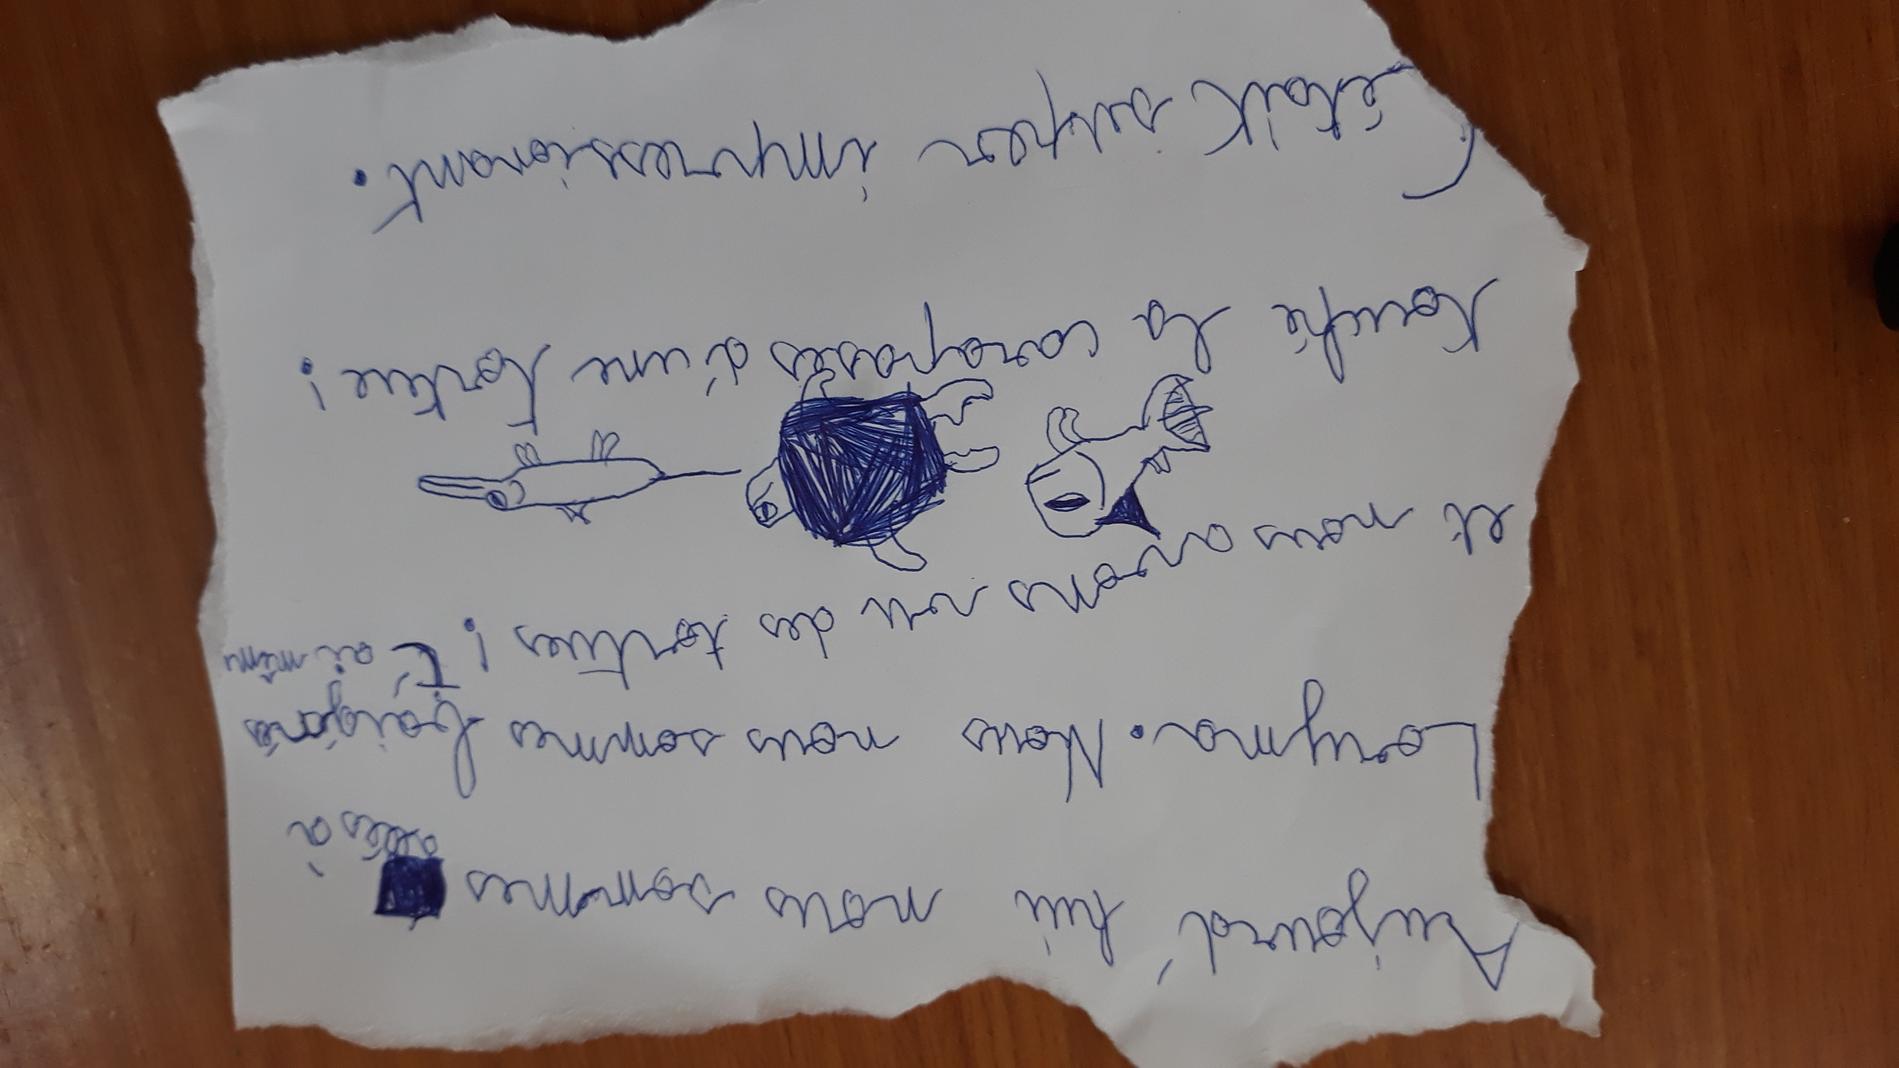 Aujourd'hui nous sommes allés à
Nous nous sommes baignés
et nous avons vu des tortues ! J'ai même
touché la carapace d'une tortue !
C'était super impressionant.